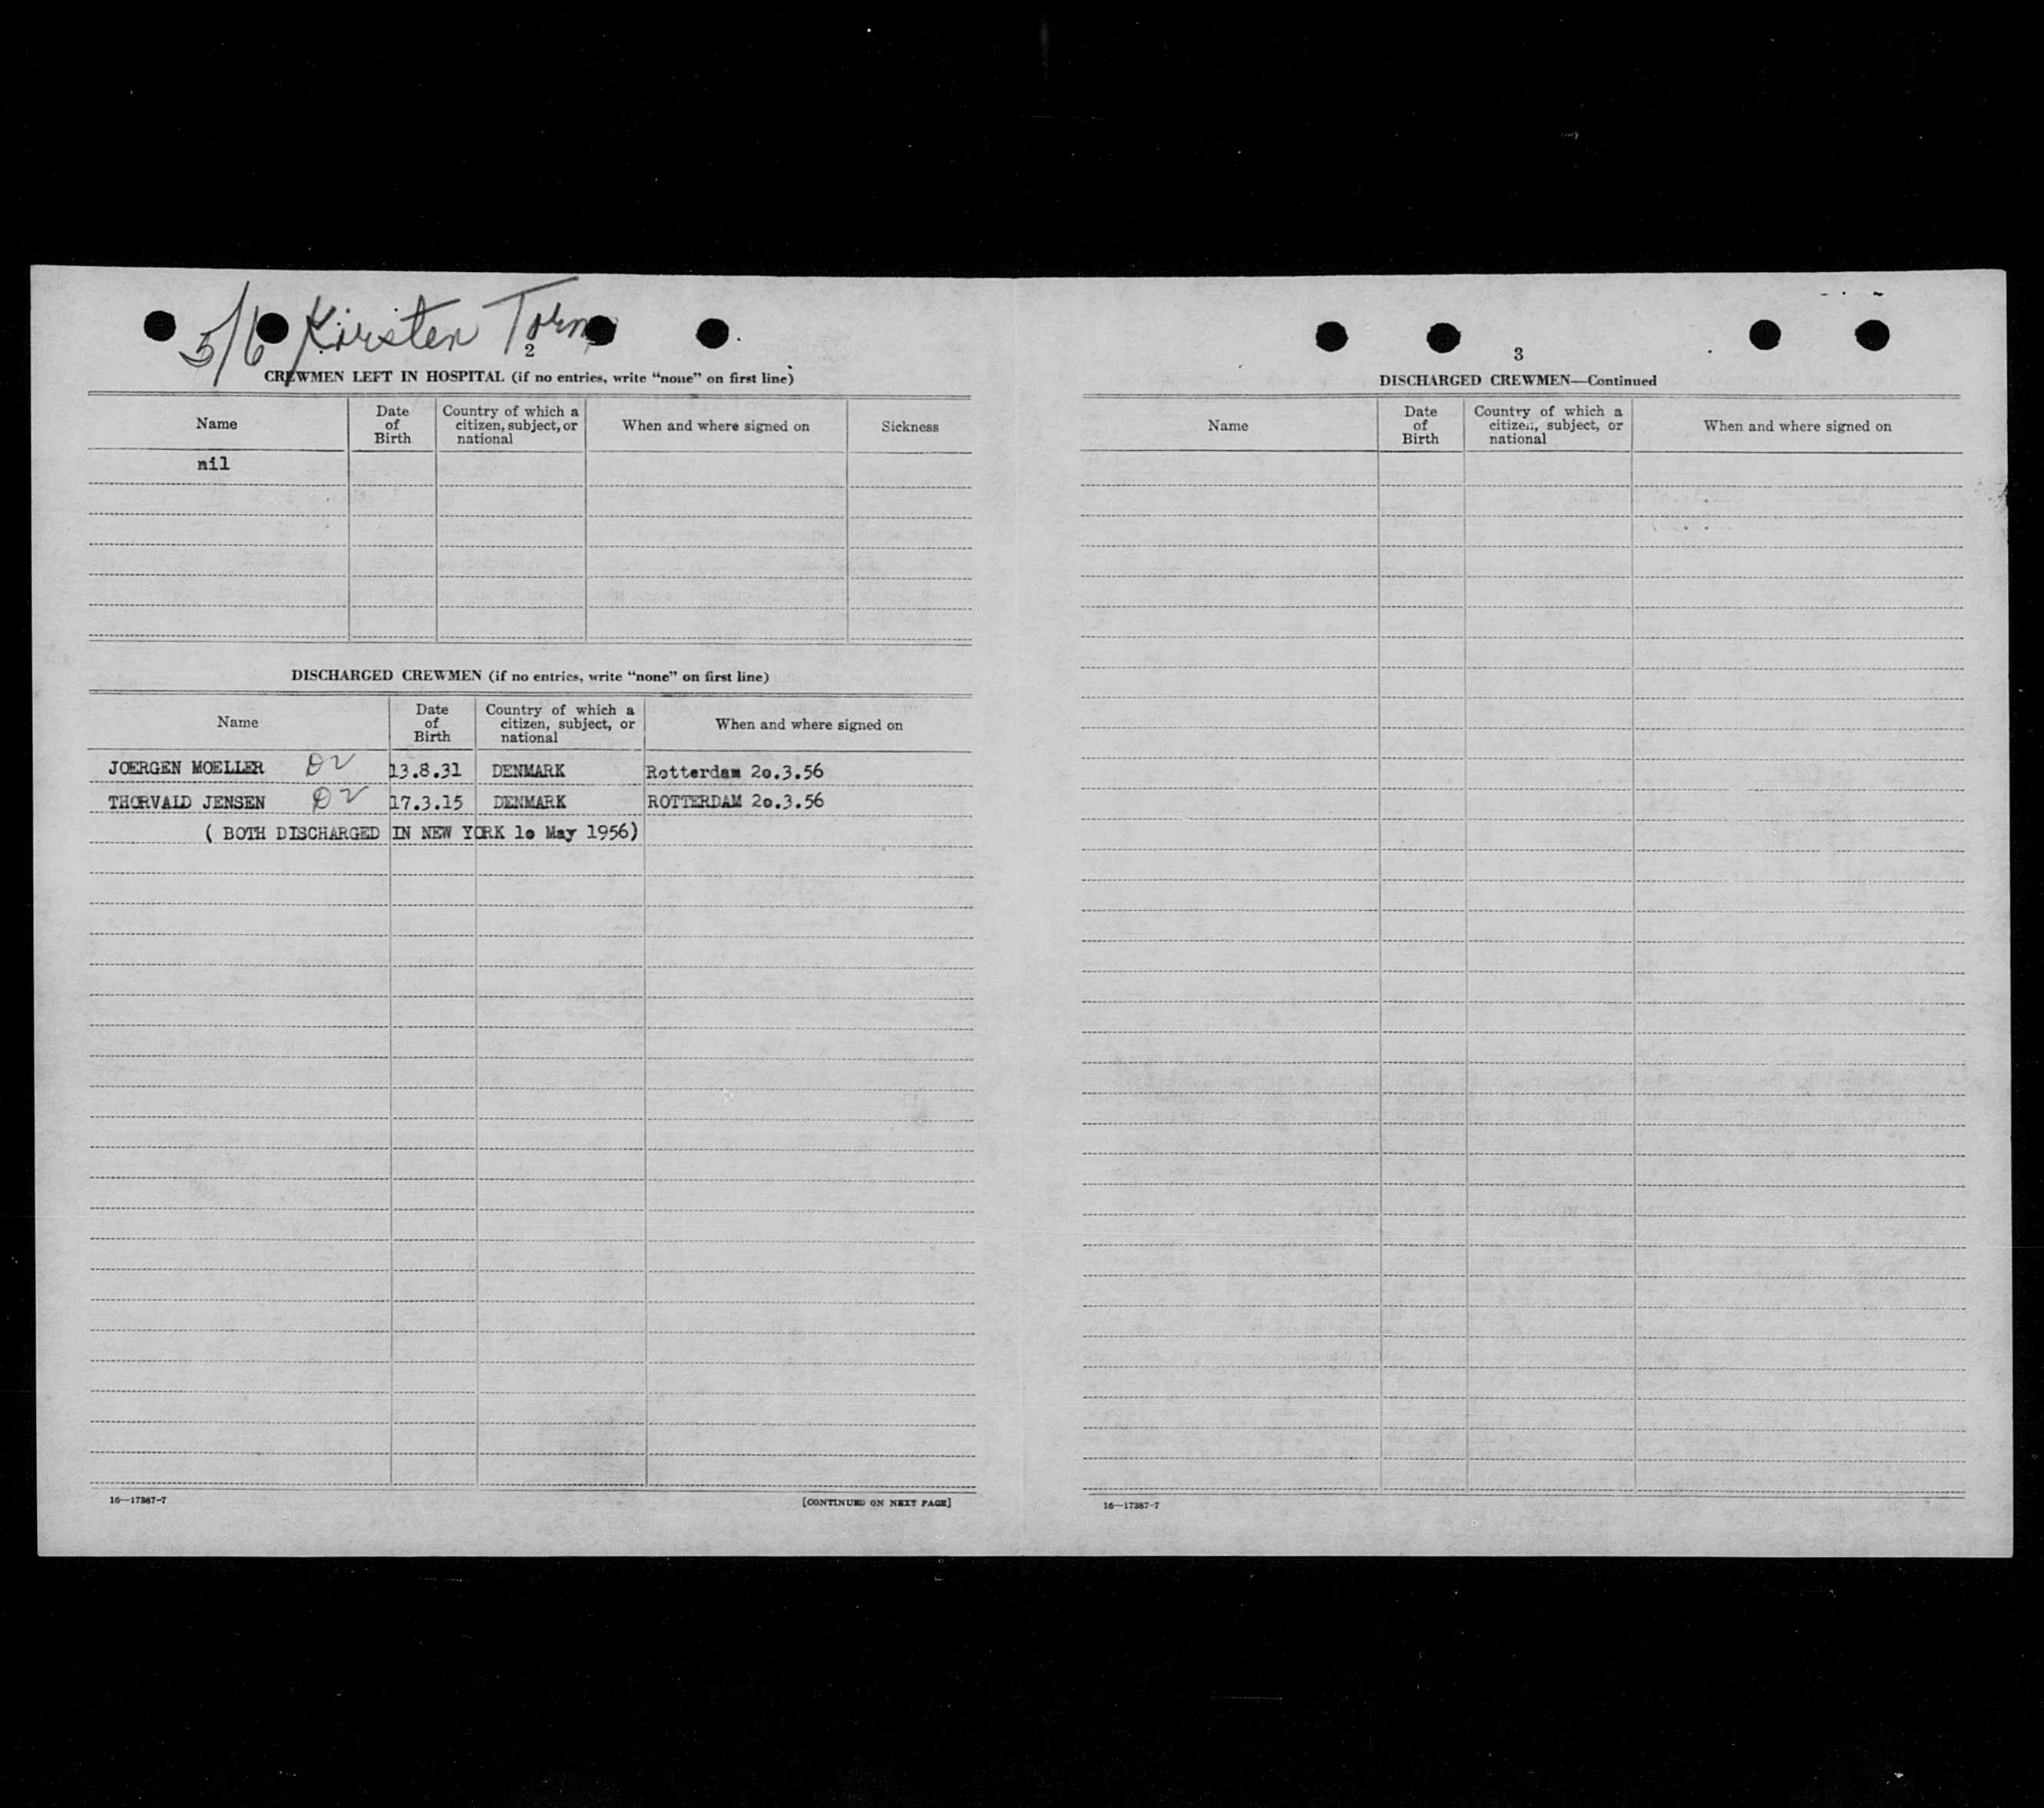 5/6 Kirsten Torm
2
CREWMEN LEFT IN HOSPITAL (if no entries, write "none" on first line)
Name
Date of Birth
Country of which a citizen, subject, or national
When and where signed on
Sickness
nil
DISCHARGED CREWMEN (if no entries, write "none" on first line)
Name
Date of Birth
Country of which a citizen, subject, or national
When and where signed on
JOERGEN MOELLER 13.8.31 DENMARK Rotterdam 2o.3.56
THORVALD JENSEN 17.3.15 DENMARK ROTTERDAM 2o.3.56
( BOTH DISCHARGED IN NEW YORK 1o May 1956)
16—17387-7
[CONTINUED ON NEXT PAGE]
3
DISCHARGED CREWMEN—Continued
Name
Date of Birth
Country of which a citizen, subject, or national
When and where signed on
16—17387-7